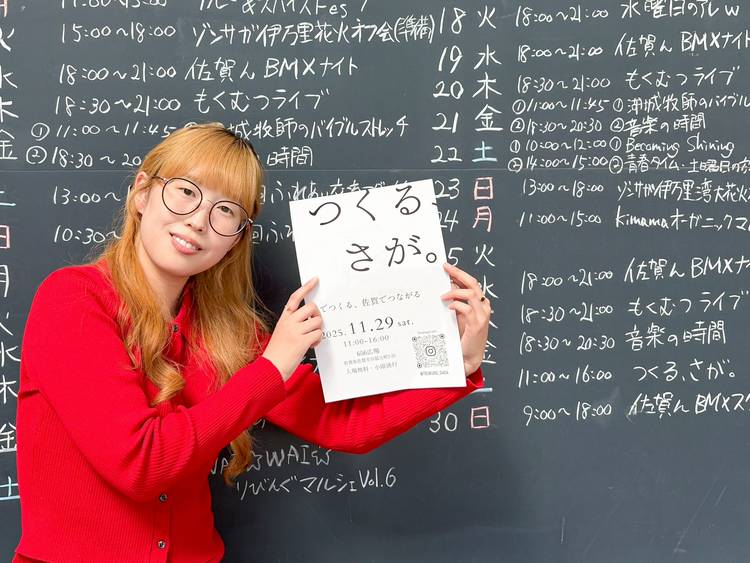 15:00～18:00 ゾンサガ伊万里花火オフ会(準備)
18:00～21:00 佐賀んBMXナイト
18:30～21:00 もくむつライブ
①11:00～11:45 ①沖城牧師のバイブルストレッチ
②18:30～20 の時間
13:00～18
10:30～
18 火 18:00～21:00 水曜日のアレw
19 水 18:00～21:00 佐賀んBMXナイト
20 木 18:30～21:00 もくむつライブ
21 金 ①11:00～11:45 ①沖城牧師のバイブル
②18:30～20:30 ②音楽の時間
22 土 ①10:00～12:00 ①Becoming Shining
②14:00～15:00 ②青春タイム・土曜日の
23 日 13:00～18:00 ゾンサガ伊万里湾大花火
24 月 11:00～15:00 Kimamaオーガニックマル
5 火
水 18:00～21:00 佐賀んBMXナイ
18:30～21:00 もくむつライブ
18:30～20:30 音楽の時間
11:00～16:00 つくる、さが。
30 日 9:00～18:00 佐賀んBMXスク
WAI☆
りびんぐマルシェVol.6
つくる、
さが。
でつくる、佐賀でつながる
2025.11.29 sat.
11:00-16:00
656広場
入場無料・小雨決行
@TSUKURU_SAGA